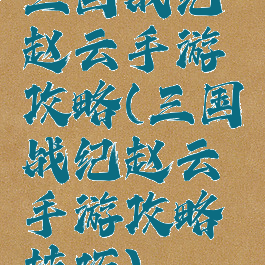 三国战纪
赵云手游
攻略(三国
战纪赵云
手游攻略
技巧)